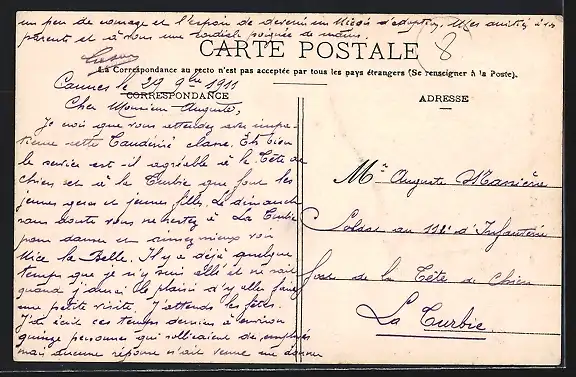 un peu de courage et l'espoir de devenir un Niçois d'adoption. Mes amitiés à vos
parents et à vous une cordiale poignée de mains.
CARTE POSTALE
8
La Correspondance au recto n'est pas acceptée par tous les pays étrangers (Se renseigner à la Poste).
Cannes le 29 9bre 1911
CORRESPONDANCE
ADRESSE
Cher Monsieur Auguste,
Je crois que vous attendez avec impa-
tience cette classe. Eh bien
le service est-il agréable à la Tête de
chien et à la Turbie que font les
jeunes gens et jeunes filles. Le dimanche
sans doute vous ne restez à La Turbie
pour danser et aimez mieux voir
Nice la Belle. Il y a déjà quelque
temps que je n'y suis allé et ne sais
quand j'aurai le plaisir d'y aller faire
une petite visite. J'attends les fêtes.
J'ai écrit ces temps derniers à environ
quinze personnes qui sollicitent des employés
mais aucune réponse n'est venue me donner
Mr Auguste
Soldat au 112e d'Infanterie
Poste de la Tête de Chien
La Turbie